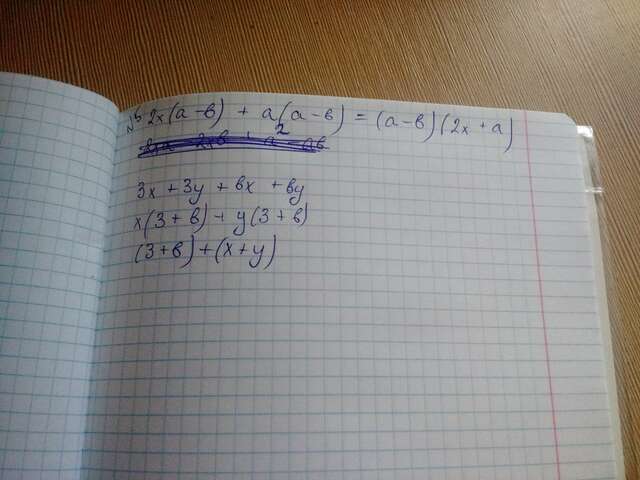 №5 2x(a-в) + a(a-в) = (a-в)(2x+a)
3x + 3y + вx + вy
x(3+в) + y(3+в)
(3+в)+(x+y)